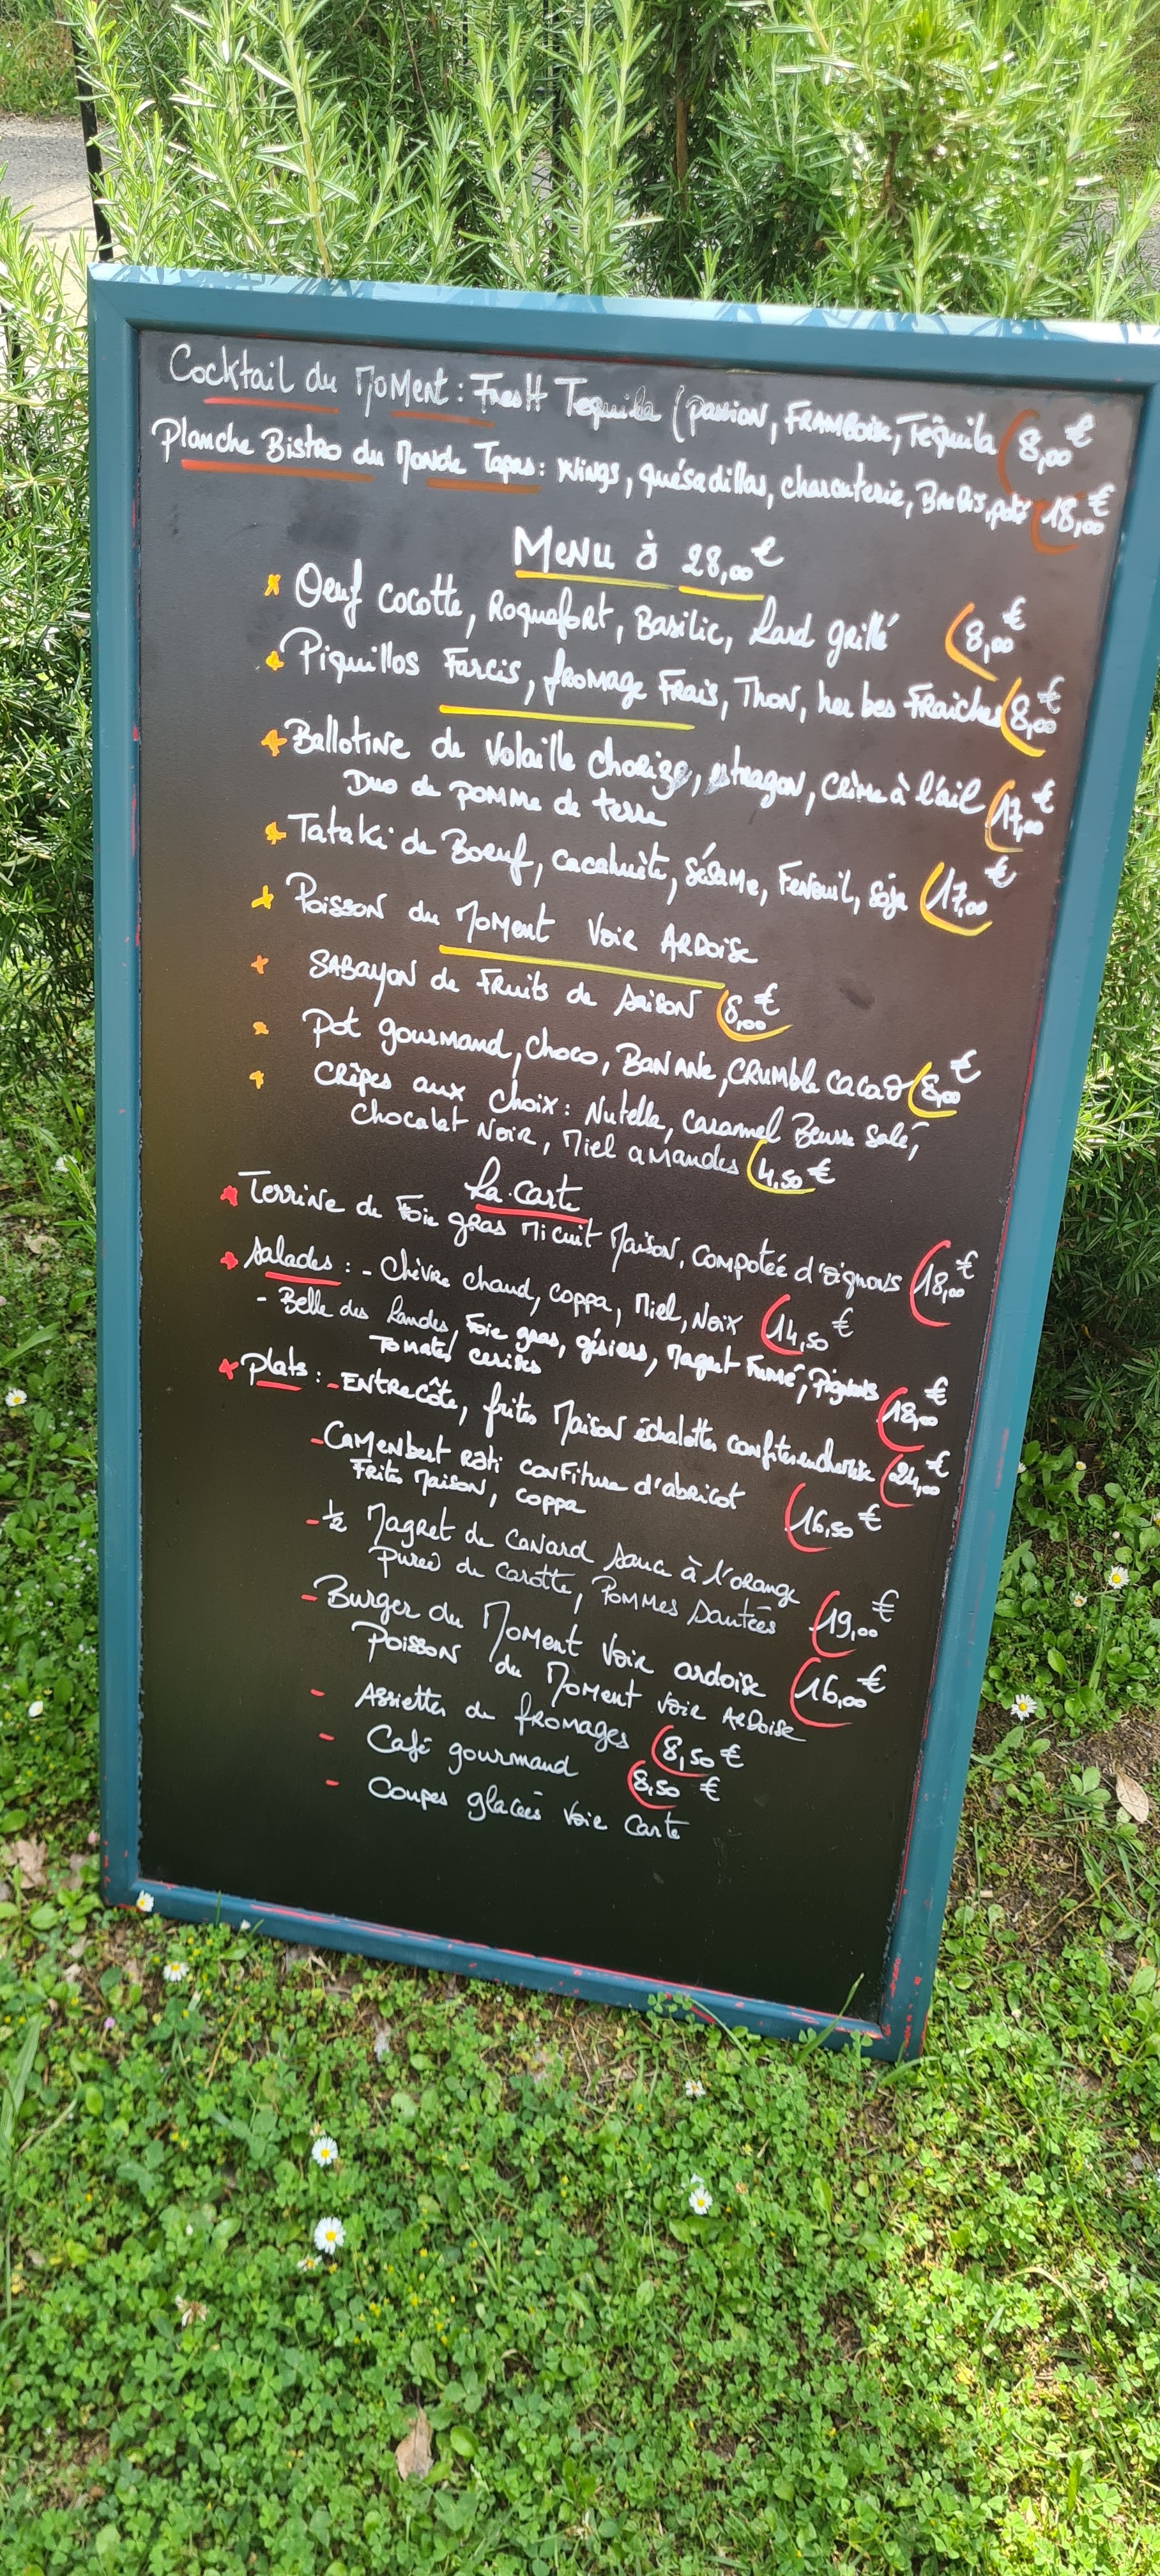 Cocktail du Moment : Fresh Tequila (passion, Framboise, Téquila 8,00€
Planche Bistro du Monde Tapas : Wings, quésadillas, charcuterie, Brebis, paté 18,00€
Menu à 28,00€
Oeuf cocotte, Roquefort, Basilic, Lard grillé 8,00€
Piquillos Farcis, fromage Frais, Thon, herbes Fraiches 8,00€
Ballotine de Volaille chorizo, estragon, Crème à l'ail 17,00€
Duo de pomme de terre
Tataki de Boeuf, cacahuète, sésame, Fenouil, soja 17,00€
Poisson du Moment Voir Ardoise
Sabayon de Fruits de saison 8,00€
Pot gourmand, choco, Banane, crumble cacao 8,00€
Crêpes aux choix : Nutella, caramel Beurre salé,
chocolat Noir, Miel amandes 4,50€
La carte
Terrine de Foie gras Micuit Maison, compotée d'oignons 18,00€
Salades : - Chèvre chaud, coppa, Miel, Noix 14,50€
- Belle des Landes Foie gras, gésiers, Magret Fumé, Pignons 18,00€
Tomates cerises
Plats : - Entrecôte, frites Maison échalottes confites en chemise 24,00€
- Camenbert rôti confiture d'abricot 16,50€
Frites Maison, coppa
- ½ Magret de Canard sauce à l'orange
Purée de carotte, Pommes Sautées 19,00€
- Burger du Moment Voir ardoise 16,00€
Poisson du Moment Voir Ardoise
- Assiettes de fromages 8,50€
- Café gourmand 8,50 €
- Coupes glacées Voir Carte